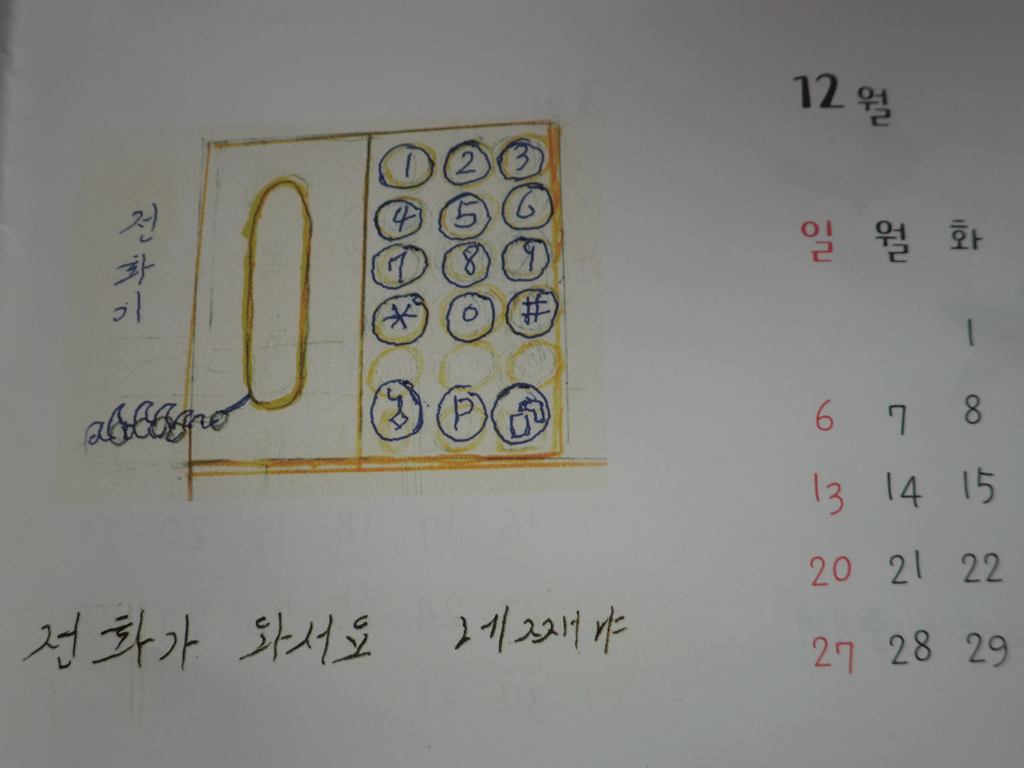 전
화
이
1 2 3
4 5 6
7 8 9
* 0 #
P
전화가 와서요
12월
일 월 화
1
6 7 8
13 14 15
20 21 22
27 28 29